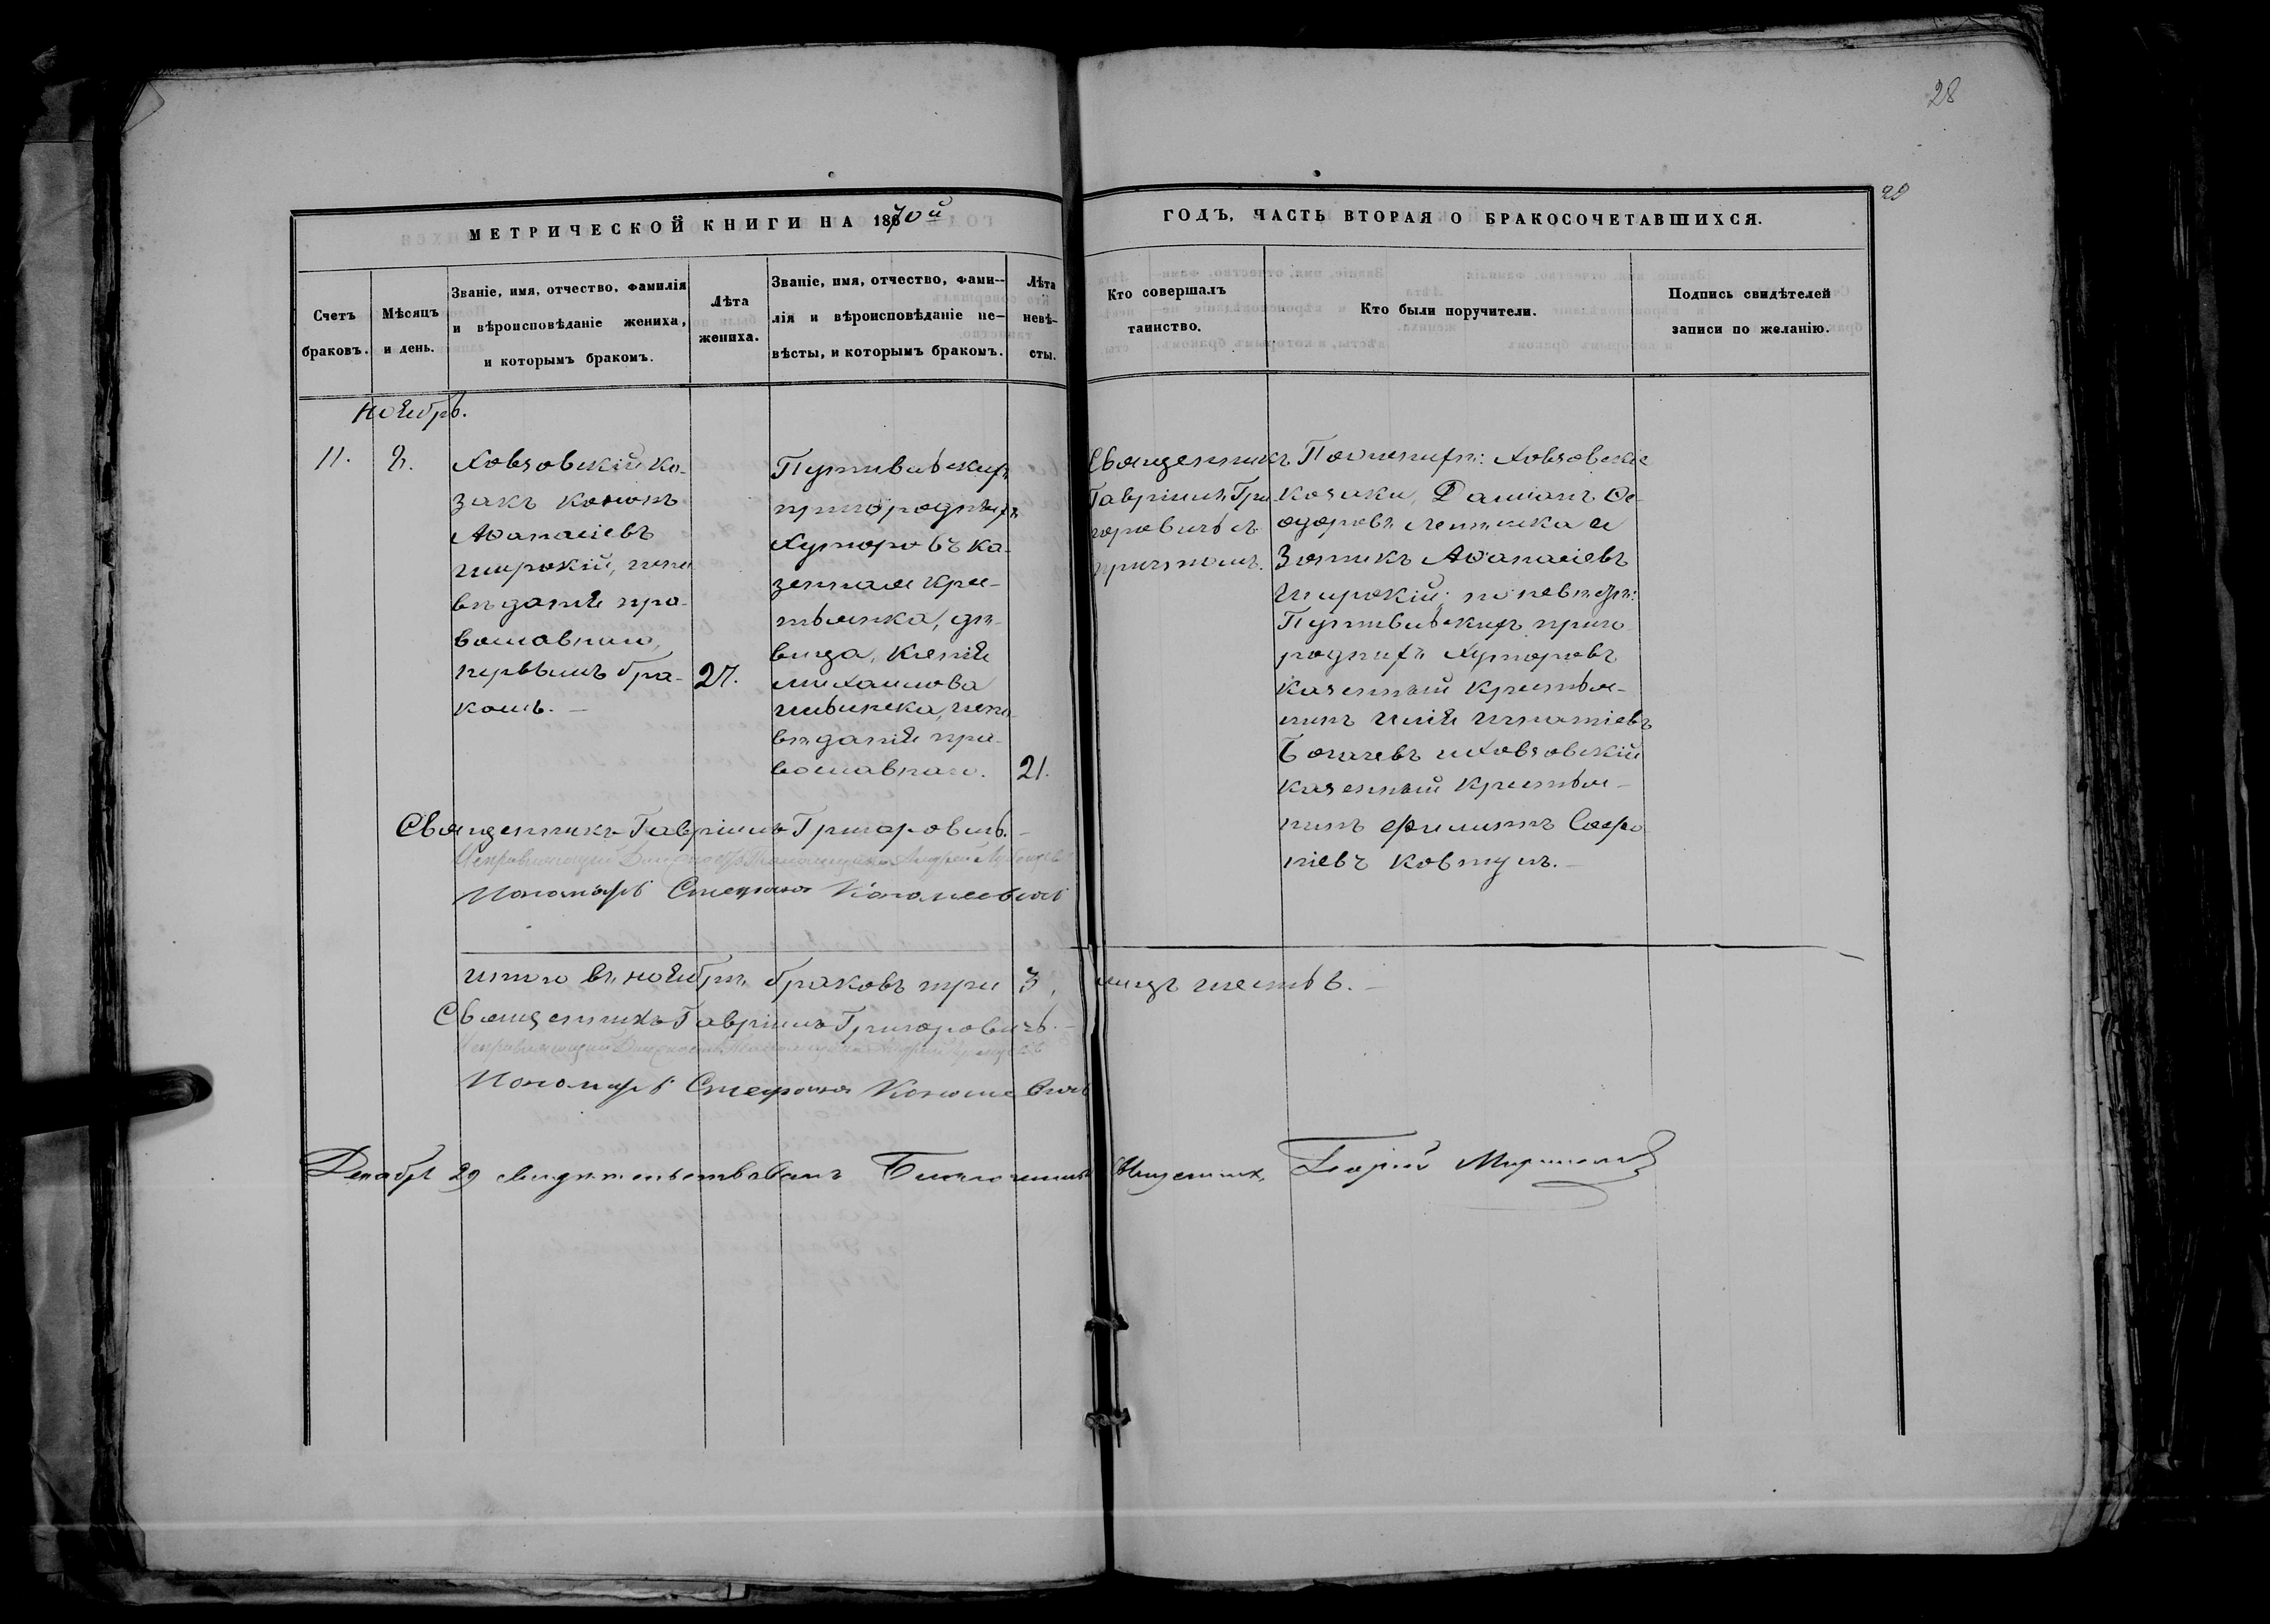 28
28
МЕТРИЧЕСКОЙ КНИГИ НА 1870й
ГОДЪ, ЧАСТЬ ВТОРАЯ О БРАКОСОЧЕТАВШИХСЯ.
Счетъ
браковъ.
Мѣсяцъ
и день.
Званіе, имя, отчество, фамилія
и вѣроисповѣданіе жениха,
и которымъ бракомъ.
Лѣта
жениха.
Званіе, имя, отчество, фами-
лія и вѣроисповѣданіе не-
вѣсты, и которымъ бракомъ.
Лѣта
невѣ-
сты.
Кто совершалъ
таинство.
Кто были поручители.
Подпись свидѣтелей
записи по желанію.
Ноябрь.
11.
8.
Ховзовскій ко-
закъ Кононъ
Аѳанасіевъ
Широкій, испо
вѣданія пра-
вославнаго,
первымъ бра-
комъ.
27.
Путивльскихъ
пригороднихъ
Хуторовъ ка-
зенная кре-
стьянка, дѣ-
вица, Ксенія
Михаилова
испо-
вѣданія пра-
вославнаго.
21.
Священникъ
Гавріилъ Гри
горовичъ съ
причтомъ.
По женихѣ: Ховзовскіе
козаки, Даміанъ Ѳе-
одоровъ и
Зотикъ Аѳанасіевъ
Широкій; по невѣстѣ:
Путивльскихъ приго
роднихъ Хуторовъ
казенный крестья-
нинъ Илія Игнатіевъ
Богачевъ и Ховзовскій
казенный крестья-
нинъ Филиппъ Софро
ніевъ Ковтунъ.
Священникъ Гавріилъ Григоровичъ.
Исправляющій Должность Псаломщика Андрей
Пономарь Стефанъ
Итого въ ноябрѣ браковъ три 3, лицъ шесть 6.
Священникъ Гавріилъ Григоровичъ.
Исправляющій Должность Псаломщика Андрей
Пономарь Стефанъ
Декабря 29 свидѣтельствовалъ Благочинный Священникъ Георгій